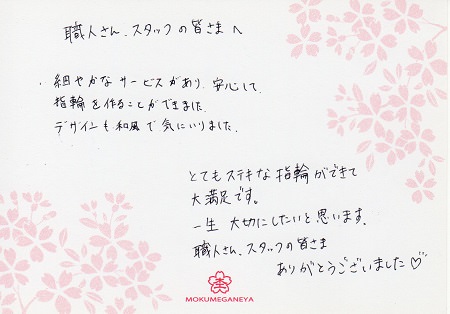 職人さん、スタッフの皆さまへ
細やかなサービスがあり、安心して、
指輪を作ることができました。
デザインも和風で気にいりました。
とてもステキな指輪ができて
大満足です。
一生大切にしたいと思います。
職人さん、スタッフの皆さま
ありがとうございました♡
MOKUMEGANEYA